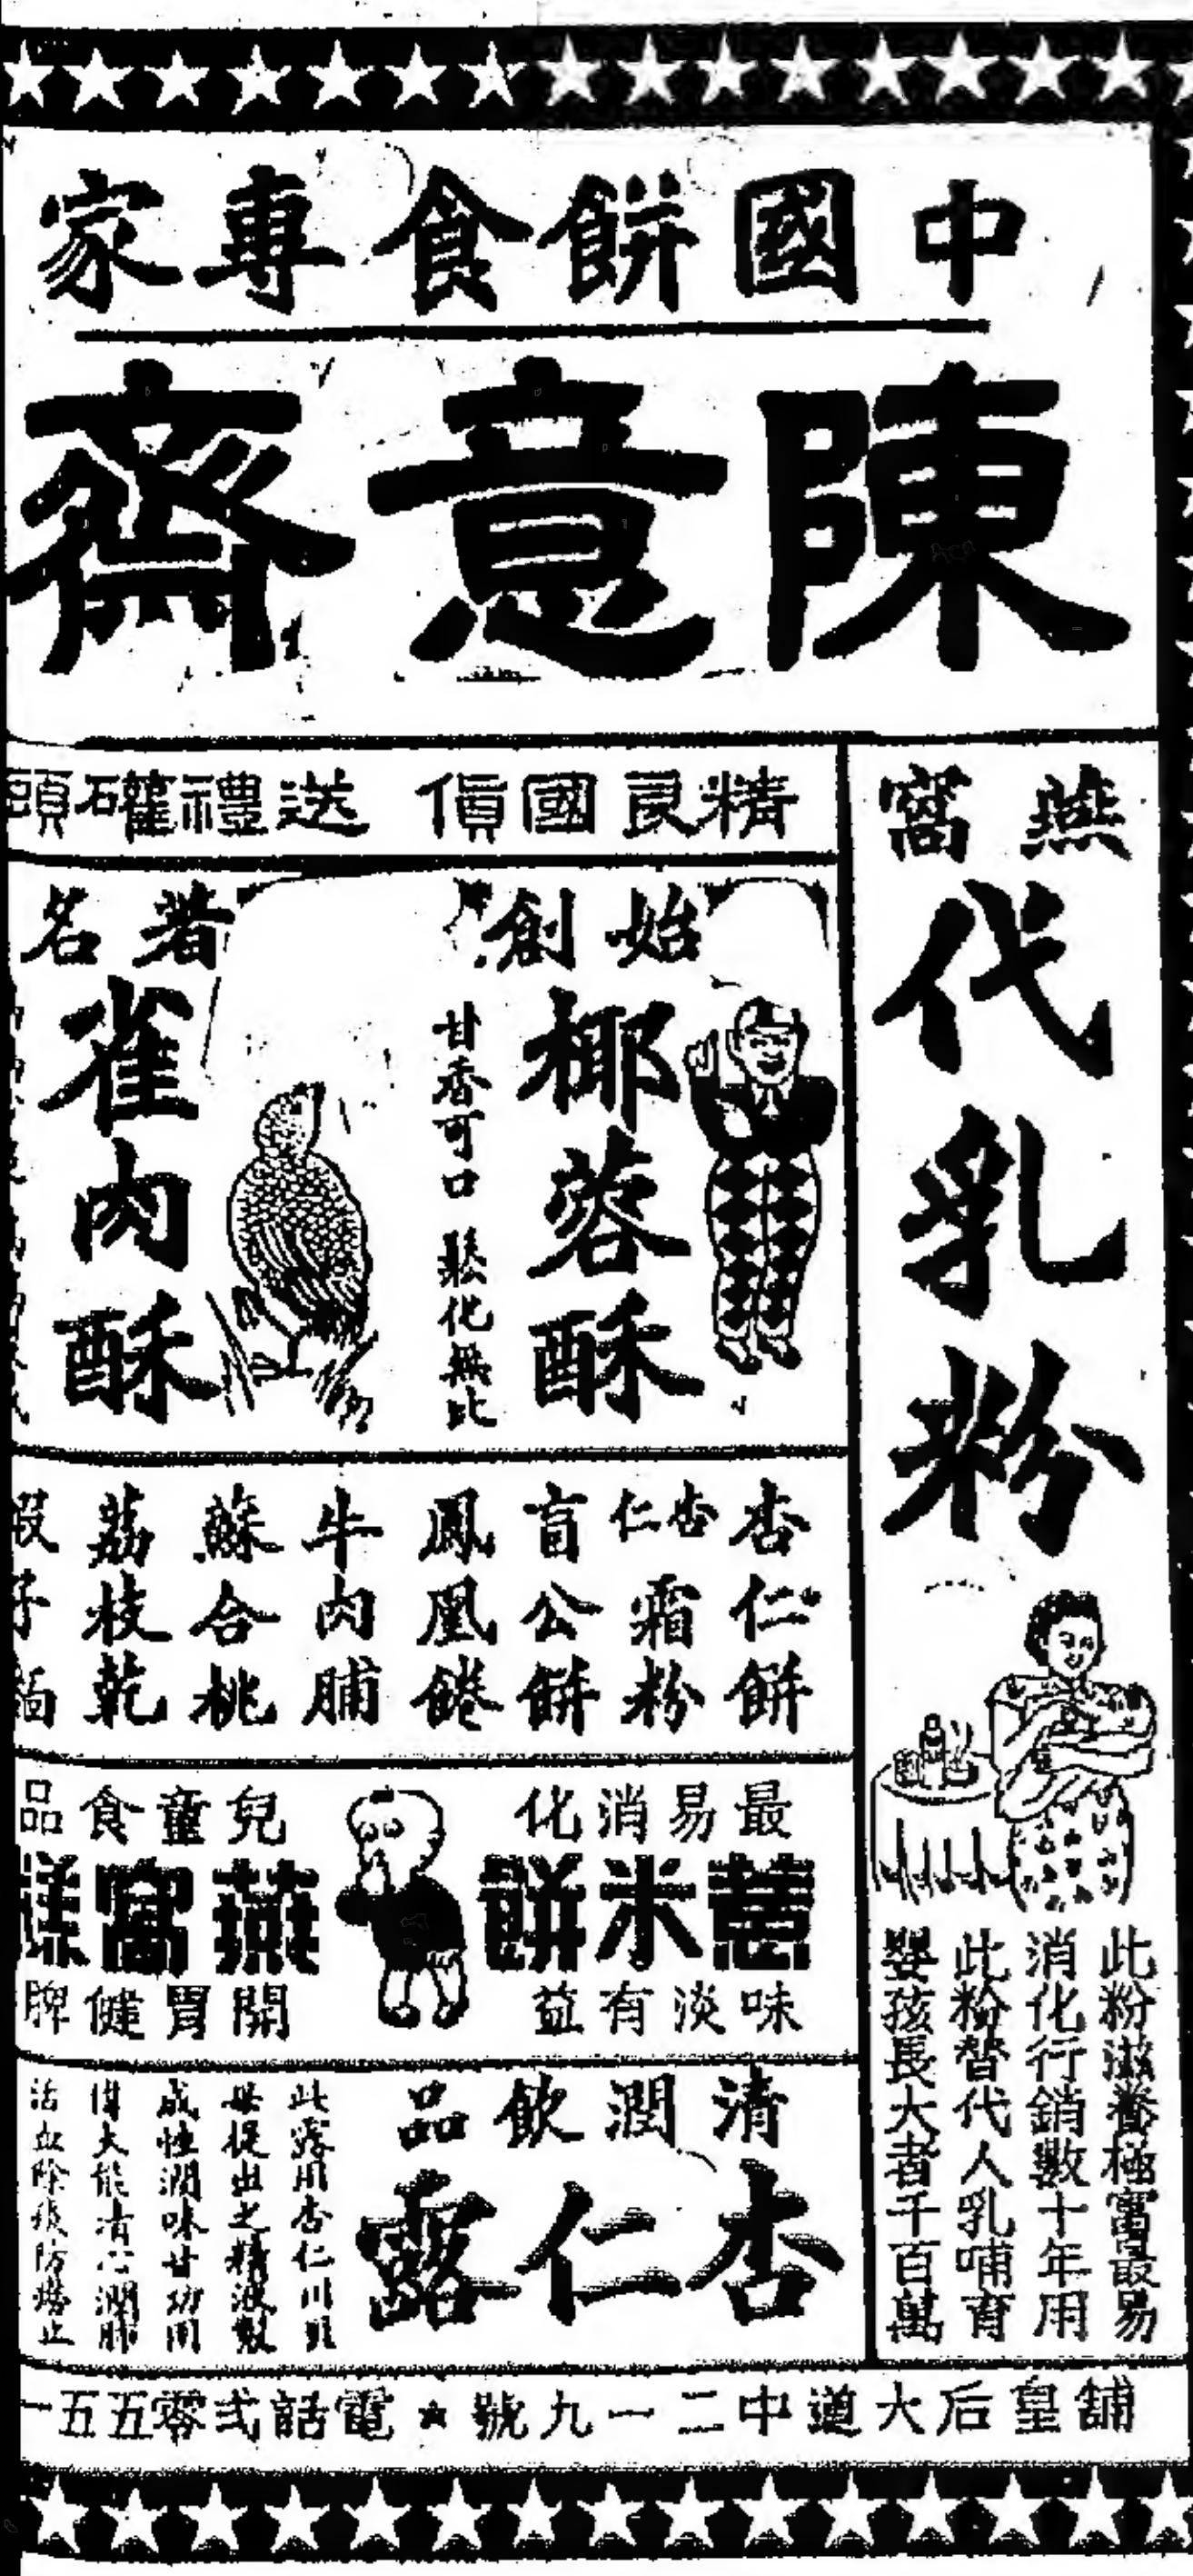 中國餅食專家
陳意齋
燕窩
代乳粉
此粉滋養極富最易
消化行銷數十年用
此粉替代人乳哺育
嬰孩長大者千百萬
精良國貨 送禮罐頭
始創
椰蓉酥
甘香可口 鬆化無比
著名
雀肉酥
杏仁餅
杏仁霜粉
盲公餅
鳳凰餞
牛肉脯
蘇合桃
荔枝乾
蝦子麵
最易消化
薏米餅
味淡有益
兒童食品
燕窩糕
開胃健脾
清潤飲品
杏仁露
此露用杏仁川貝
母提出之精液製
成性潤味甘功用
偉大能清心潤肺
活血除痰防癆止
舖皇后大道中二一九號★電話弍零五五一